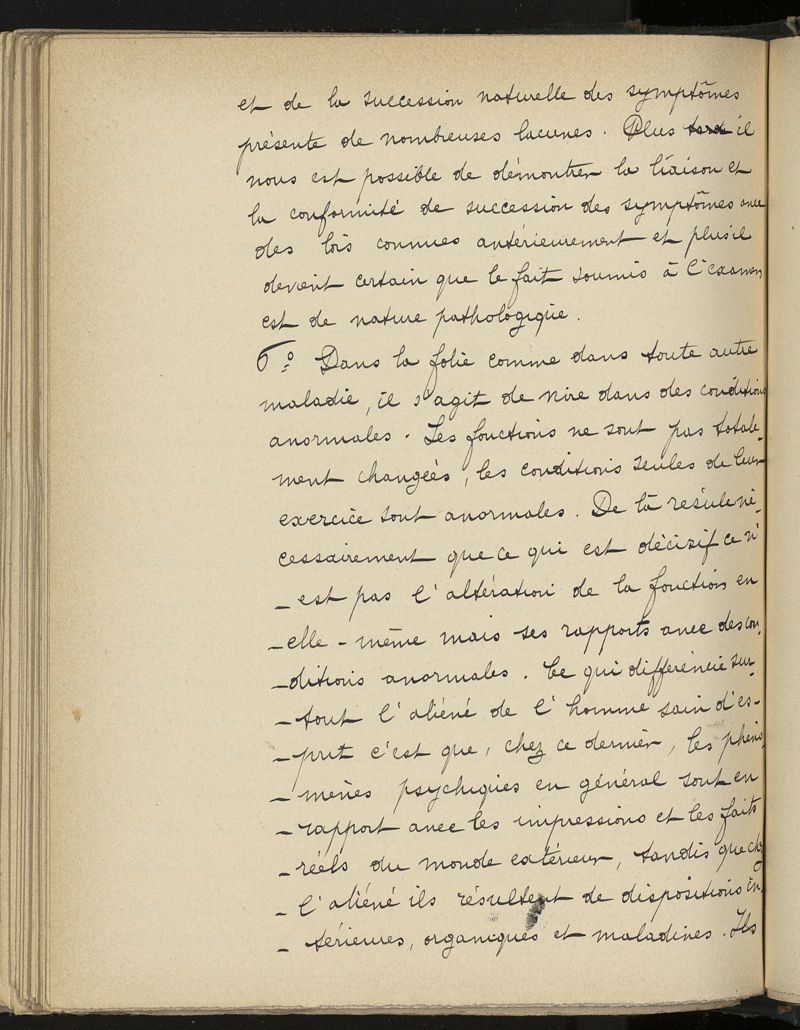 et de la succession naturelle des symptômes
présente de nombreuses lacunes. Plus tard il
nous est possible de démontrer la liaison et
la conformité de succession des symptômes avec
des lois connues antérieurement et plus il
devient certain que le fait soumis à l'examen
est de nature pathologique.
6º Dans la folie comme dans toute autre
maladie, il s'agit de vivre dans des conditions
anormales. Les fonctions ne sont pas totale-
ment changées, les conditions seules de leur
exercice sont anormales. De là résulte né-
cessairement que ce qui est décisif ce n'
- est pas l'altération de la fonction en
- elle-même mais ses rapports avec des con-
- ditions anormales. Ce qui différencie sur-
- tout l'aliéné de l'homme sain d'es-
- prit c'est que, chez ce dernier, les phéno-
- mènes psychiques en général sont en
- rapport avec les impressions et les faits
- réels du monde extérieur, tandis que chez
- l'aliéné ils résultent de dispositions in-
- térieures, organiques et maladives. Ils